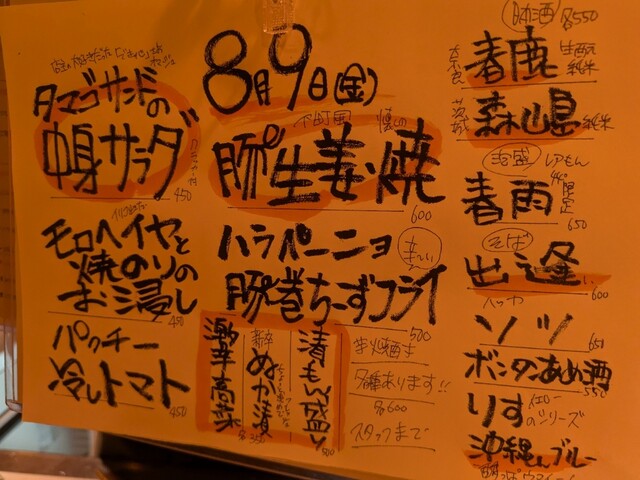 8月9日(金)
タマゴサンドの
中身サラダ
450
モロヘイヤと
焼のりの
お浸し
450
パクチー
冷しトマト
450
下町風
懐しの
豚生姜焼
600
ハラペーニョ
辛〜い
豚巻ちーずフライ
500
漬もん盛り
500
ぬか漬
激辛高菜
芋焼酎も
各種あります!!
各600
スタッフまで
日本酒 各550
奈良
春鹿
生酛
純米
茨城
森嶋
純米
泡盛
レアもん
春雨
44°
限定
650
そば
出逢い
600
ハッカ
ソツ
651
ボンタンあめ酒
550
りすイエロー
のシリーズ
沖縄えんブルー